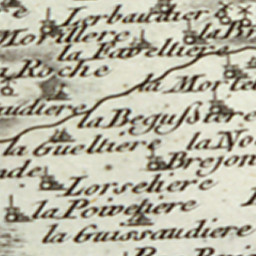 Lerbaudier
Morillere
la Br
la Favelttiere
a Roche
la Morte
audiere
la Begussiere
la Gueltiere
la No
Brejon
de
Lorseliere
la Poivetiere
la Guissaudiere